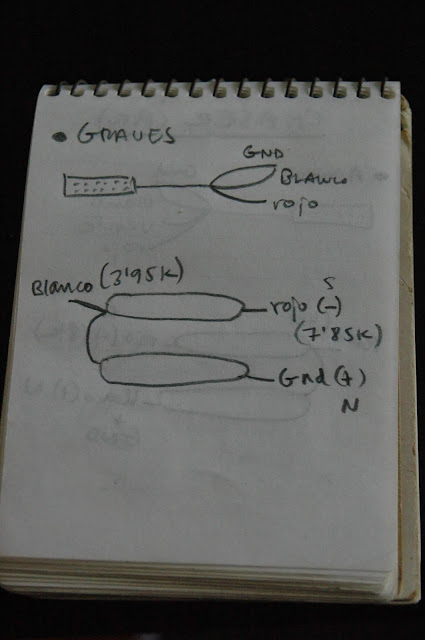 • GRAVES
GND
BLANCO
rojo
Blanco (3'95K)
S
rojo (-)
(7'85K)
Gnd (+)
N